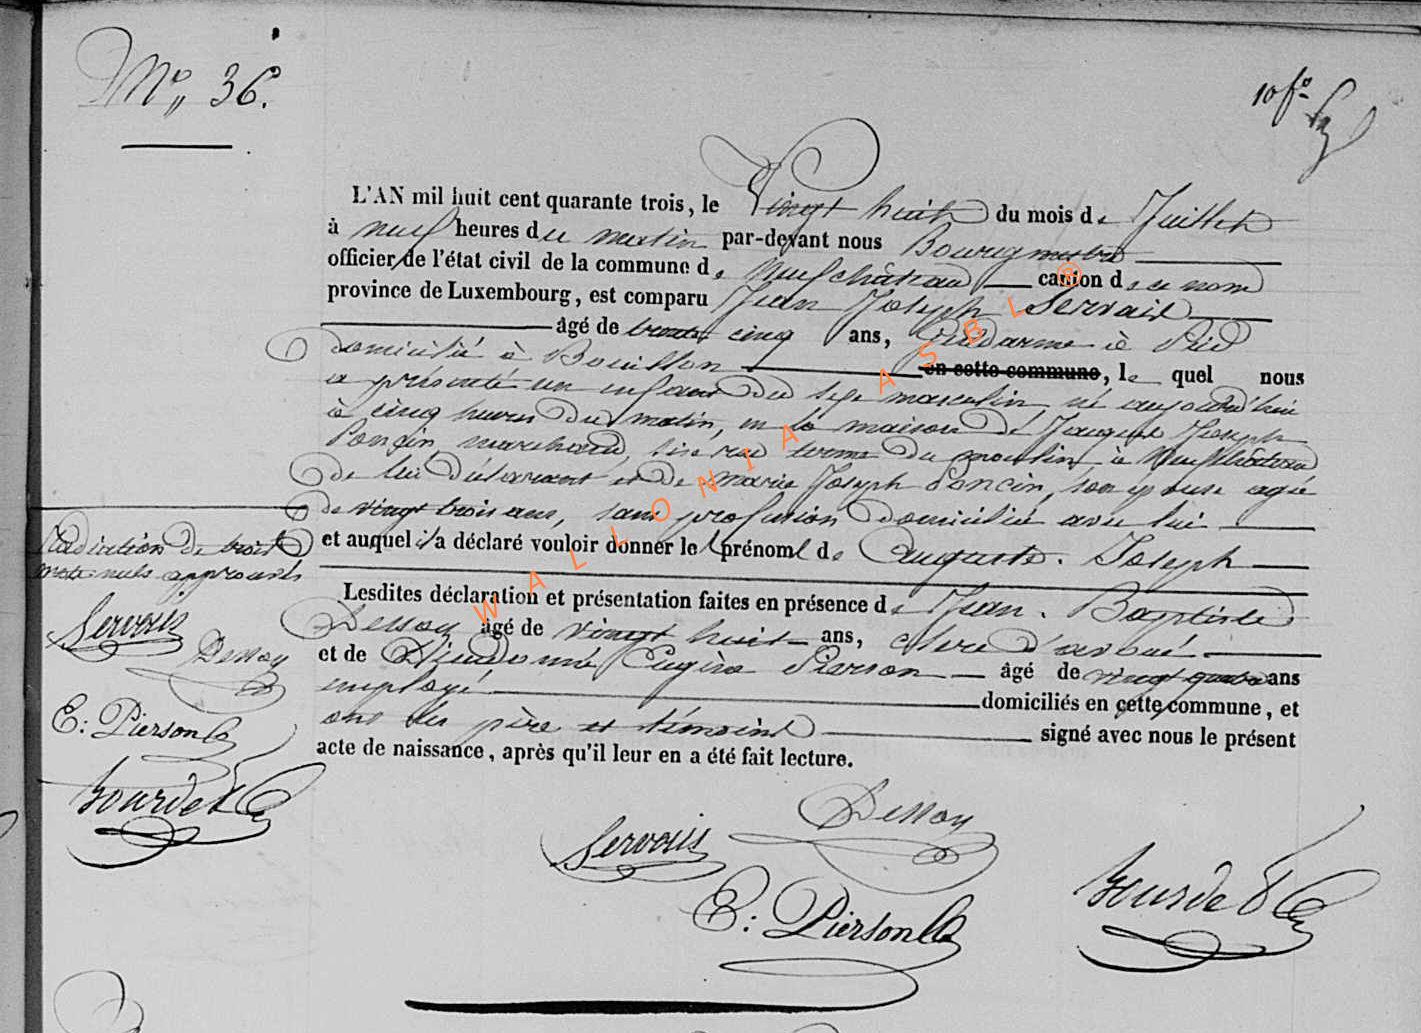 N° 36.
10 f°
L'AN mil huit cent quarante trois, le Vingt huit du mois de Juillet
à neuf heures du matin par-devant nous Bourgmestre
officier de l'état civil de la commune de Neufchâteau canton de ce nom
province de Luxembourg, est comparu Jean Joseph Servais
âgé de trente cinq ans, Gendarme à Pied
domicilié à Bouillon en cette commune, le quel nous
a présenté un enfant du sexe masculin, né aujourd'hui
à cinq heures du matin, en la maison de Jacques Joseph
Poncin, marchand, sise rue terme du moulin, à Neufchâteau
de lui déclarant et de Marie Joseph Poncin, son épouse agée
de vingt trois ans, sans profession domiciliée avec lui
et auquel il a déclaré vouloir donner les prénoms de Auguste. Joseph
Lesdites déclaration et présentation faites en présence de Jean. Baptiste
Dessoy âgé de vingt huit ans, clerc d'avoué.
et de Dieudonné Eugène Pierson âgé de vingt quatre ans
employé domiciliés en cette commune, et
ont les père et témoins signé avec nous le présent
acte de naissance, après qu'il leur en a été fait lecture.
Radiation de trois
mots nuls approuvés
Servais
Dessoy
E: Pierson
Bourde
Servais
Dessoy
E: Pierson
Bourde
WALLONIA ASBL ®